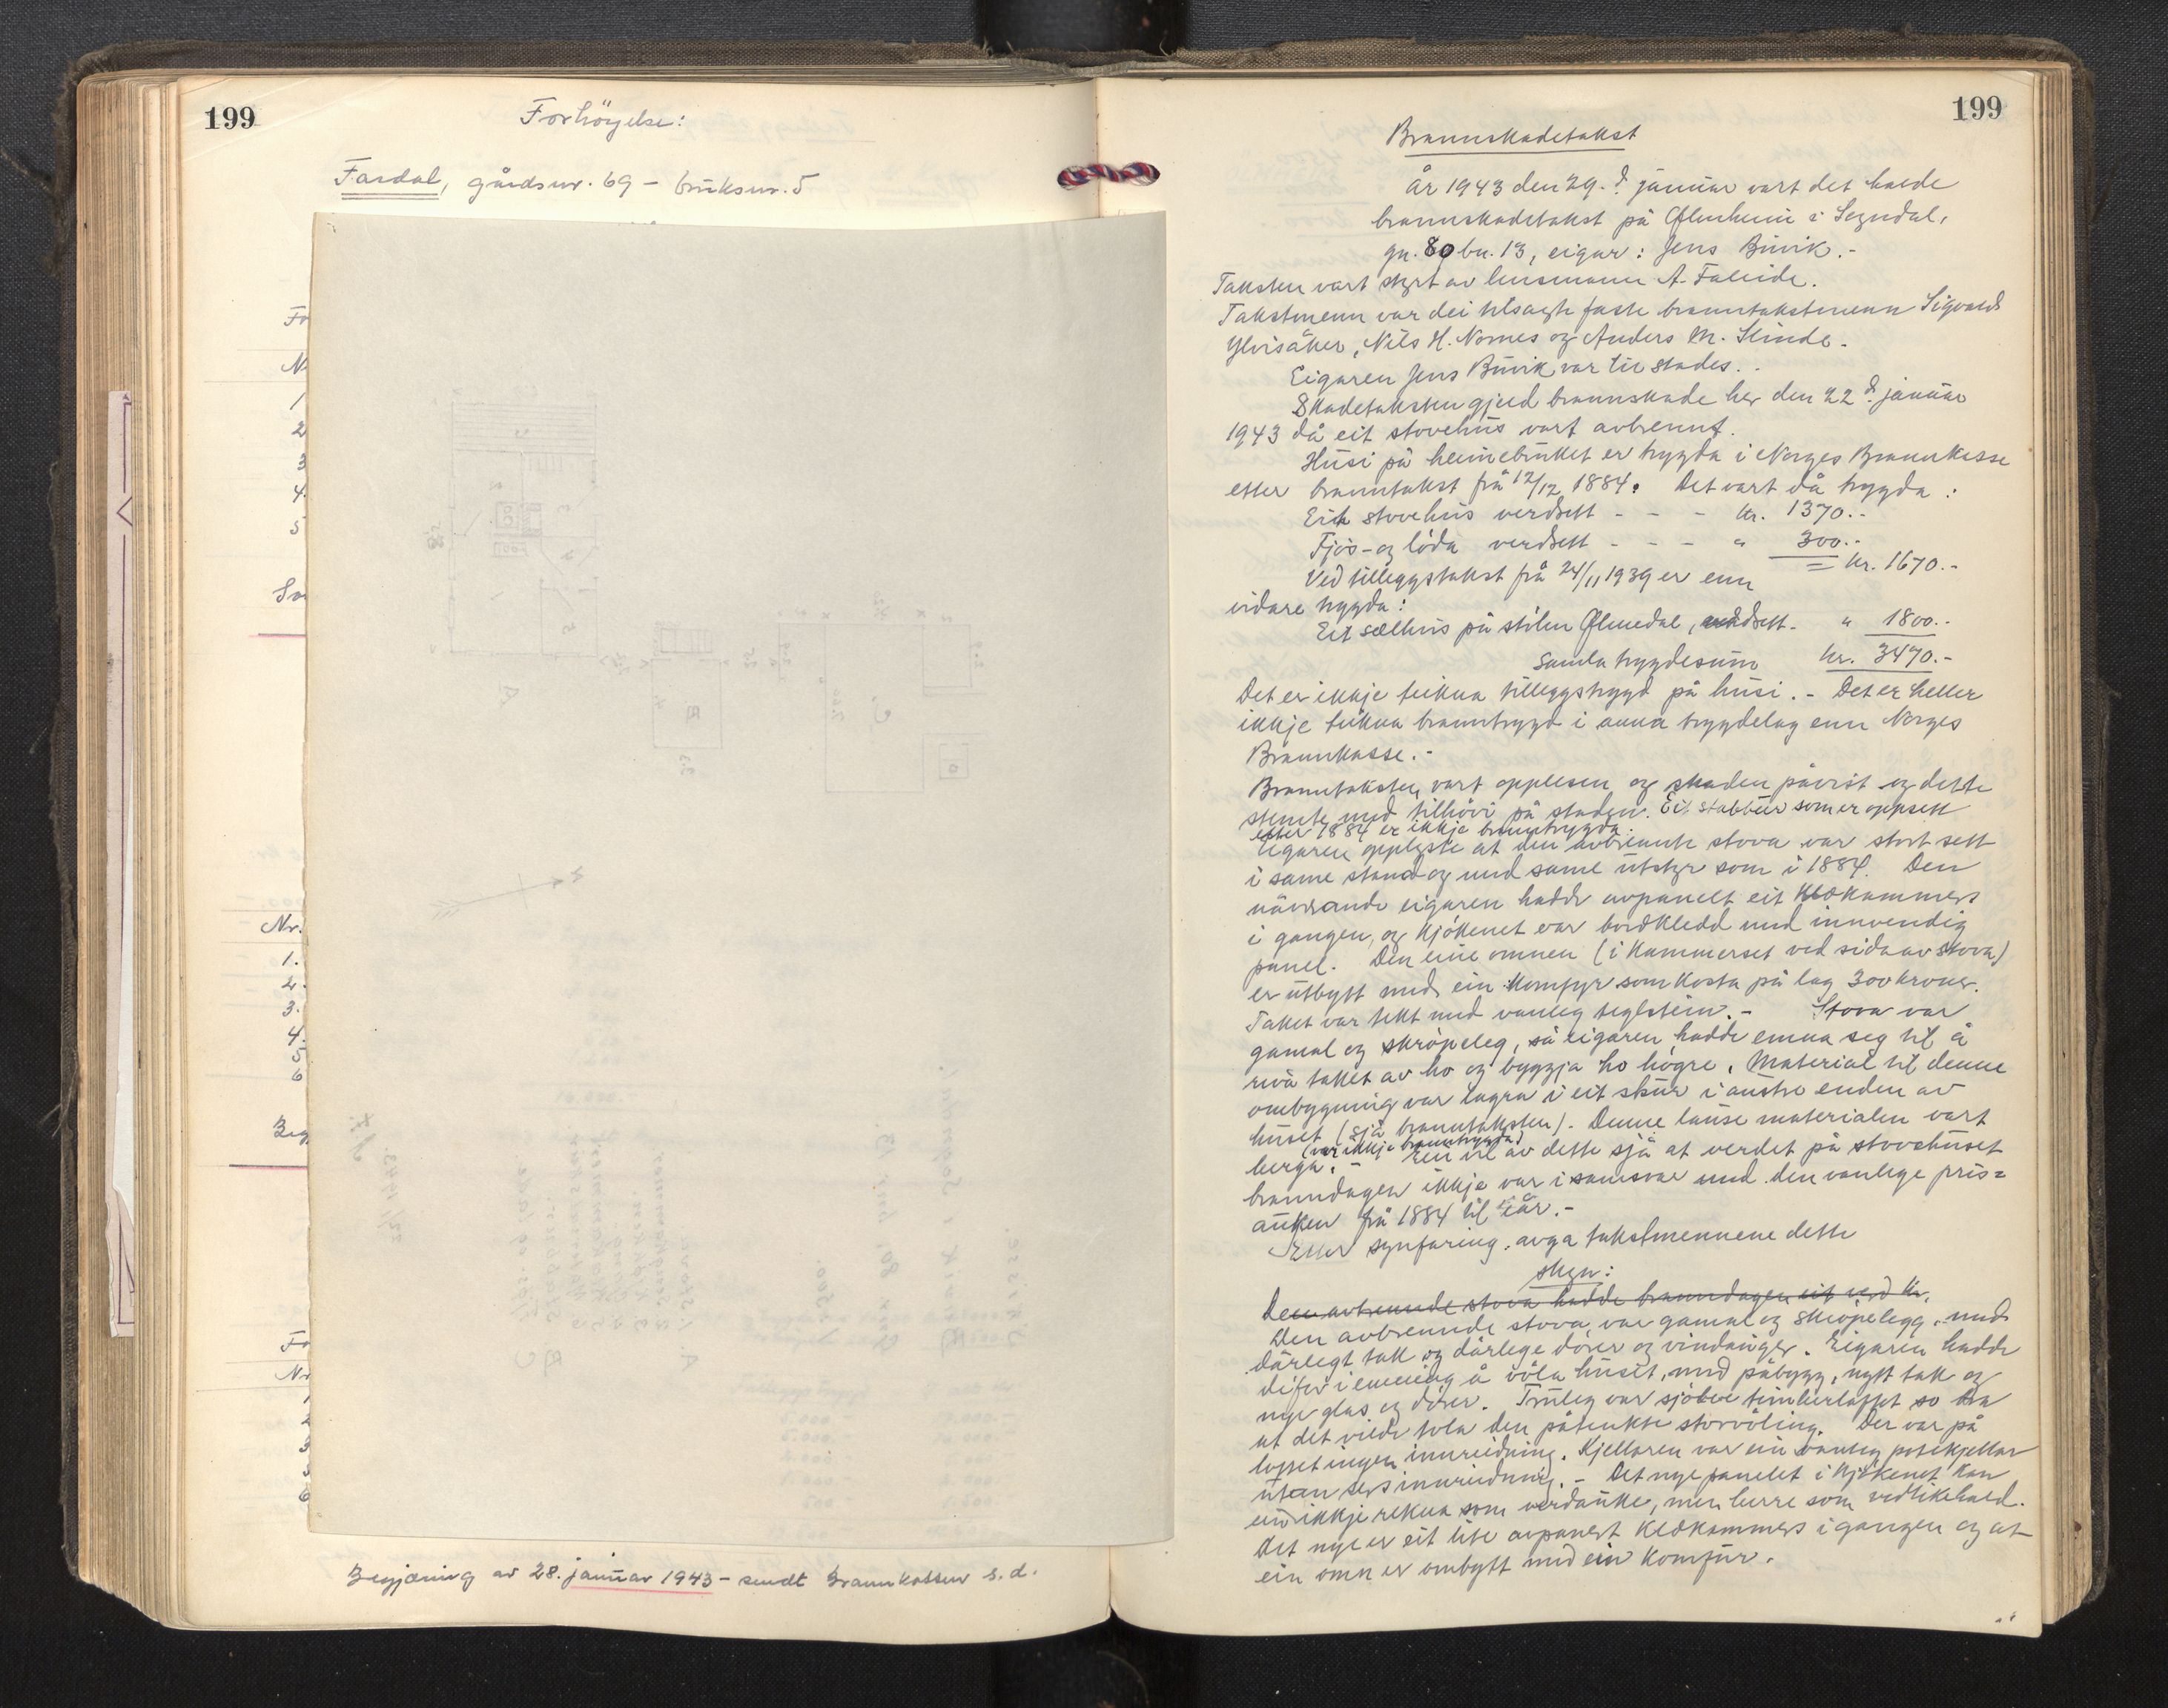 199
Forhöyelse:
Fardal, gårdsnr. 69 - bruksnr. 5
Fo
N
1
2
3
4.
5
Nr.
1.
2.
3.
4.
5
6
Fo
Nr
1
2
3
Begjæring av 28. januar 1943 - sendt Brannkassen s.d.
199
Brannskadetakst
År 1943 den 29. d. januar vart det halde
brannskadetakst på Ølmheim i Sogndal,
gn. 80 bn. 13, eigar: Jens Buvik.-
Taksten vart styrt av lensmann A. Faleide.
Takstmenn var dei tilsagte faste branntakstmenn Sigvald
Ylvisåker, Nils H. Nornes og Anders M. Slinde.
Eigaren Jens Buvik var til stades.
Skadetaksten gjeld brannskade her den 22 d. januar
1943 då eit stovehus vart avbrennt.
Husi på heimebruket er trygda i Norges Brannkasse
etter branntakst frå 12/12 1884. Det vart då trygda:
Eit stovehus verdsett - - - kr. 1370.-
Fjös- og löda verdsett - - - " 300.-
= kr. 1670.-
Ved tilleggstakst frå 24/11 1939 er enn
vidare trygda:
Eit selhus på stölen Ølmedal, verdsett - " 1800.-
Samla trygdesum kr. 3470.-
Det er ikkje teikna tilleggstrygd på husi. - Det er heller
ikkje teikna branntrygd i anna trygdelag enn Norges
Brannkasse.-
Branntaksten vart opplesen og skaden påvist og dette
stemte med tilhövi på staden. Eit stabbur som er oppsett
etter 1884 er ikkje branntrygda.
Eigaren opplyste at den avbrennte stova var stort sett
i same stand og med same utstyr som i 1884. Den
nåverande eigaren hadde avpanelt eit klekammers
i gangen, og kjökenet var bordkledd med innvendig
panel. Den eine omnen (i kammerset ved sida av stova)
er utbytt med ein komfyr som kosta på lag 300 kroner.
Taket var tekt med vanleg teglstein.- Stova var
gamal og skröpeleg, så eigaren hadde emna seg til å
riva taket av ho og byggja ho högre. Material til denne
ombygning var lagra i eit skur i austre enden av
huset (sjå branntaksten). Denne lause materialen vart
(var ikkje branntrygda)
berga. - Ein vil av dette sjå at verdet på stovehuset
branndagen ikkje var i samsvar med den vanlege pris=
auken frå 1884 til i år.-
Etter synfaring, avga takstmennene dette
skyn:
Den avbrennde stova hadde branndagen eit verd kr.
Den avbrennde stova var gamal og skröpelegg, med
dårlegt tak og dårlege dörer og vindauger. Eigaren hadde
difor i emning å völa huset, med påbygg, nytt tak og
nye glas og dörer. Truleg var sjölve timberlaftet so bra
at det vilde tola den påtenkte storvöling. Der var på
loftet ingen innreidning. Kjellaren var ein vanleg potekjellar
utan serinnreidning. - Det nye panelet i kjökenet kan
ein ikkje rekna som verdauke, men berre som vedlikehald.
Det nye er eit lite avpanelt klekammers i gangen og at
ein omn er ombytt med ein komfur.